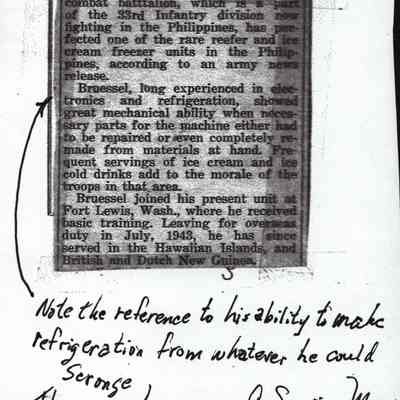 combat battalion, which is a part
of the 33rd Infantry division now
fighting in the Philippines, has per-
fected one of the rare reefer and ice
cream freezer units in the Philip-
pines, according to an army news
release.
Bruessel, long experienced in elec-
tronics and refrigeration, showed
great mechanical ability when neces-
sary parts for the machine either had
to be repaired or even completely re-
made from materials at hand. Fre-
quent servings of ice cream and ice
cold drinks add to the morale of the
troops in that area.
Bruessel joined his present unit at
Fort Lewis, Wash., where he received
basic training. Leaving for overseas
duty in July, 1943, he has since
served in the Hawaiian Islands, and
British and Dutch New Guinea.
Note the reference to his ability to make
refrigeration from whatever he could
Scronge